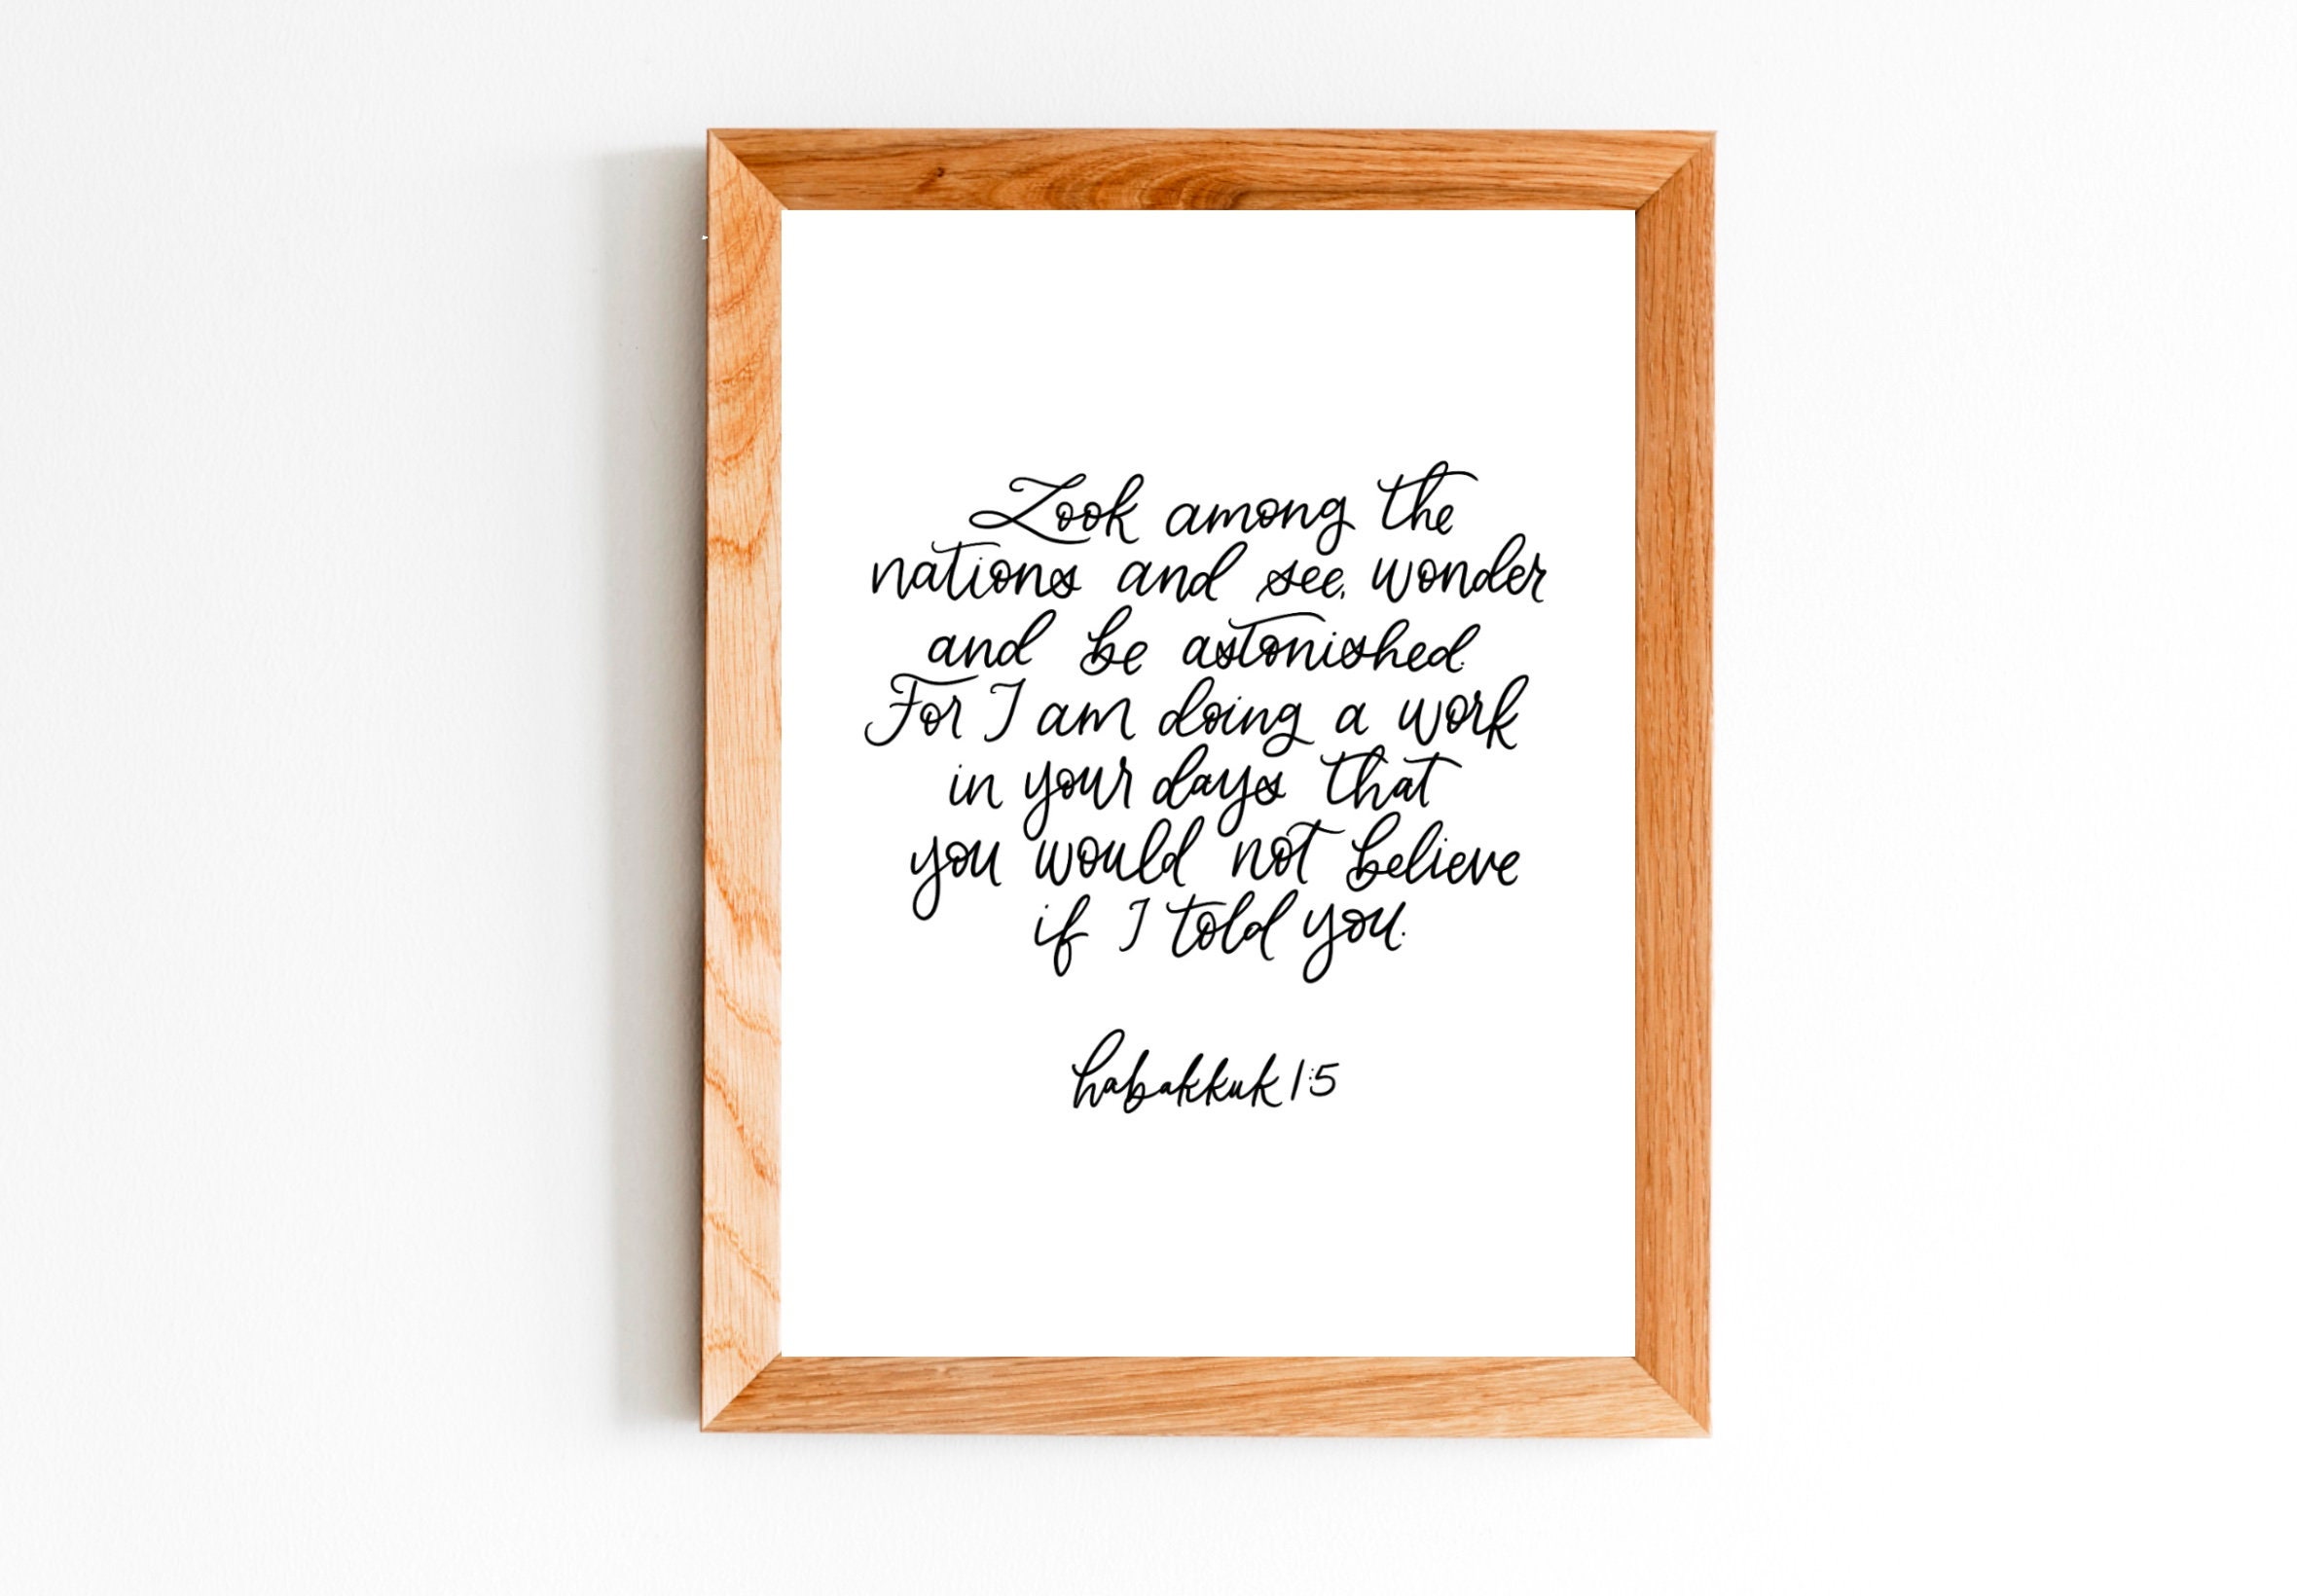 Look among the
nations and see, wonder
and be astonished.
For I am doing a work
in your days that
you would not believe
if I told you.
habakkuk 1:5